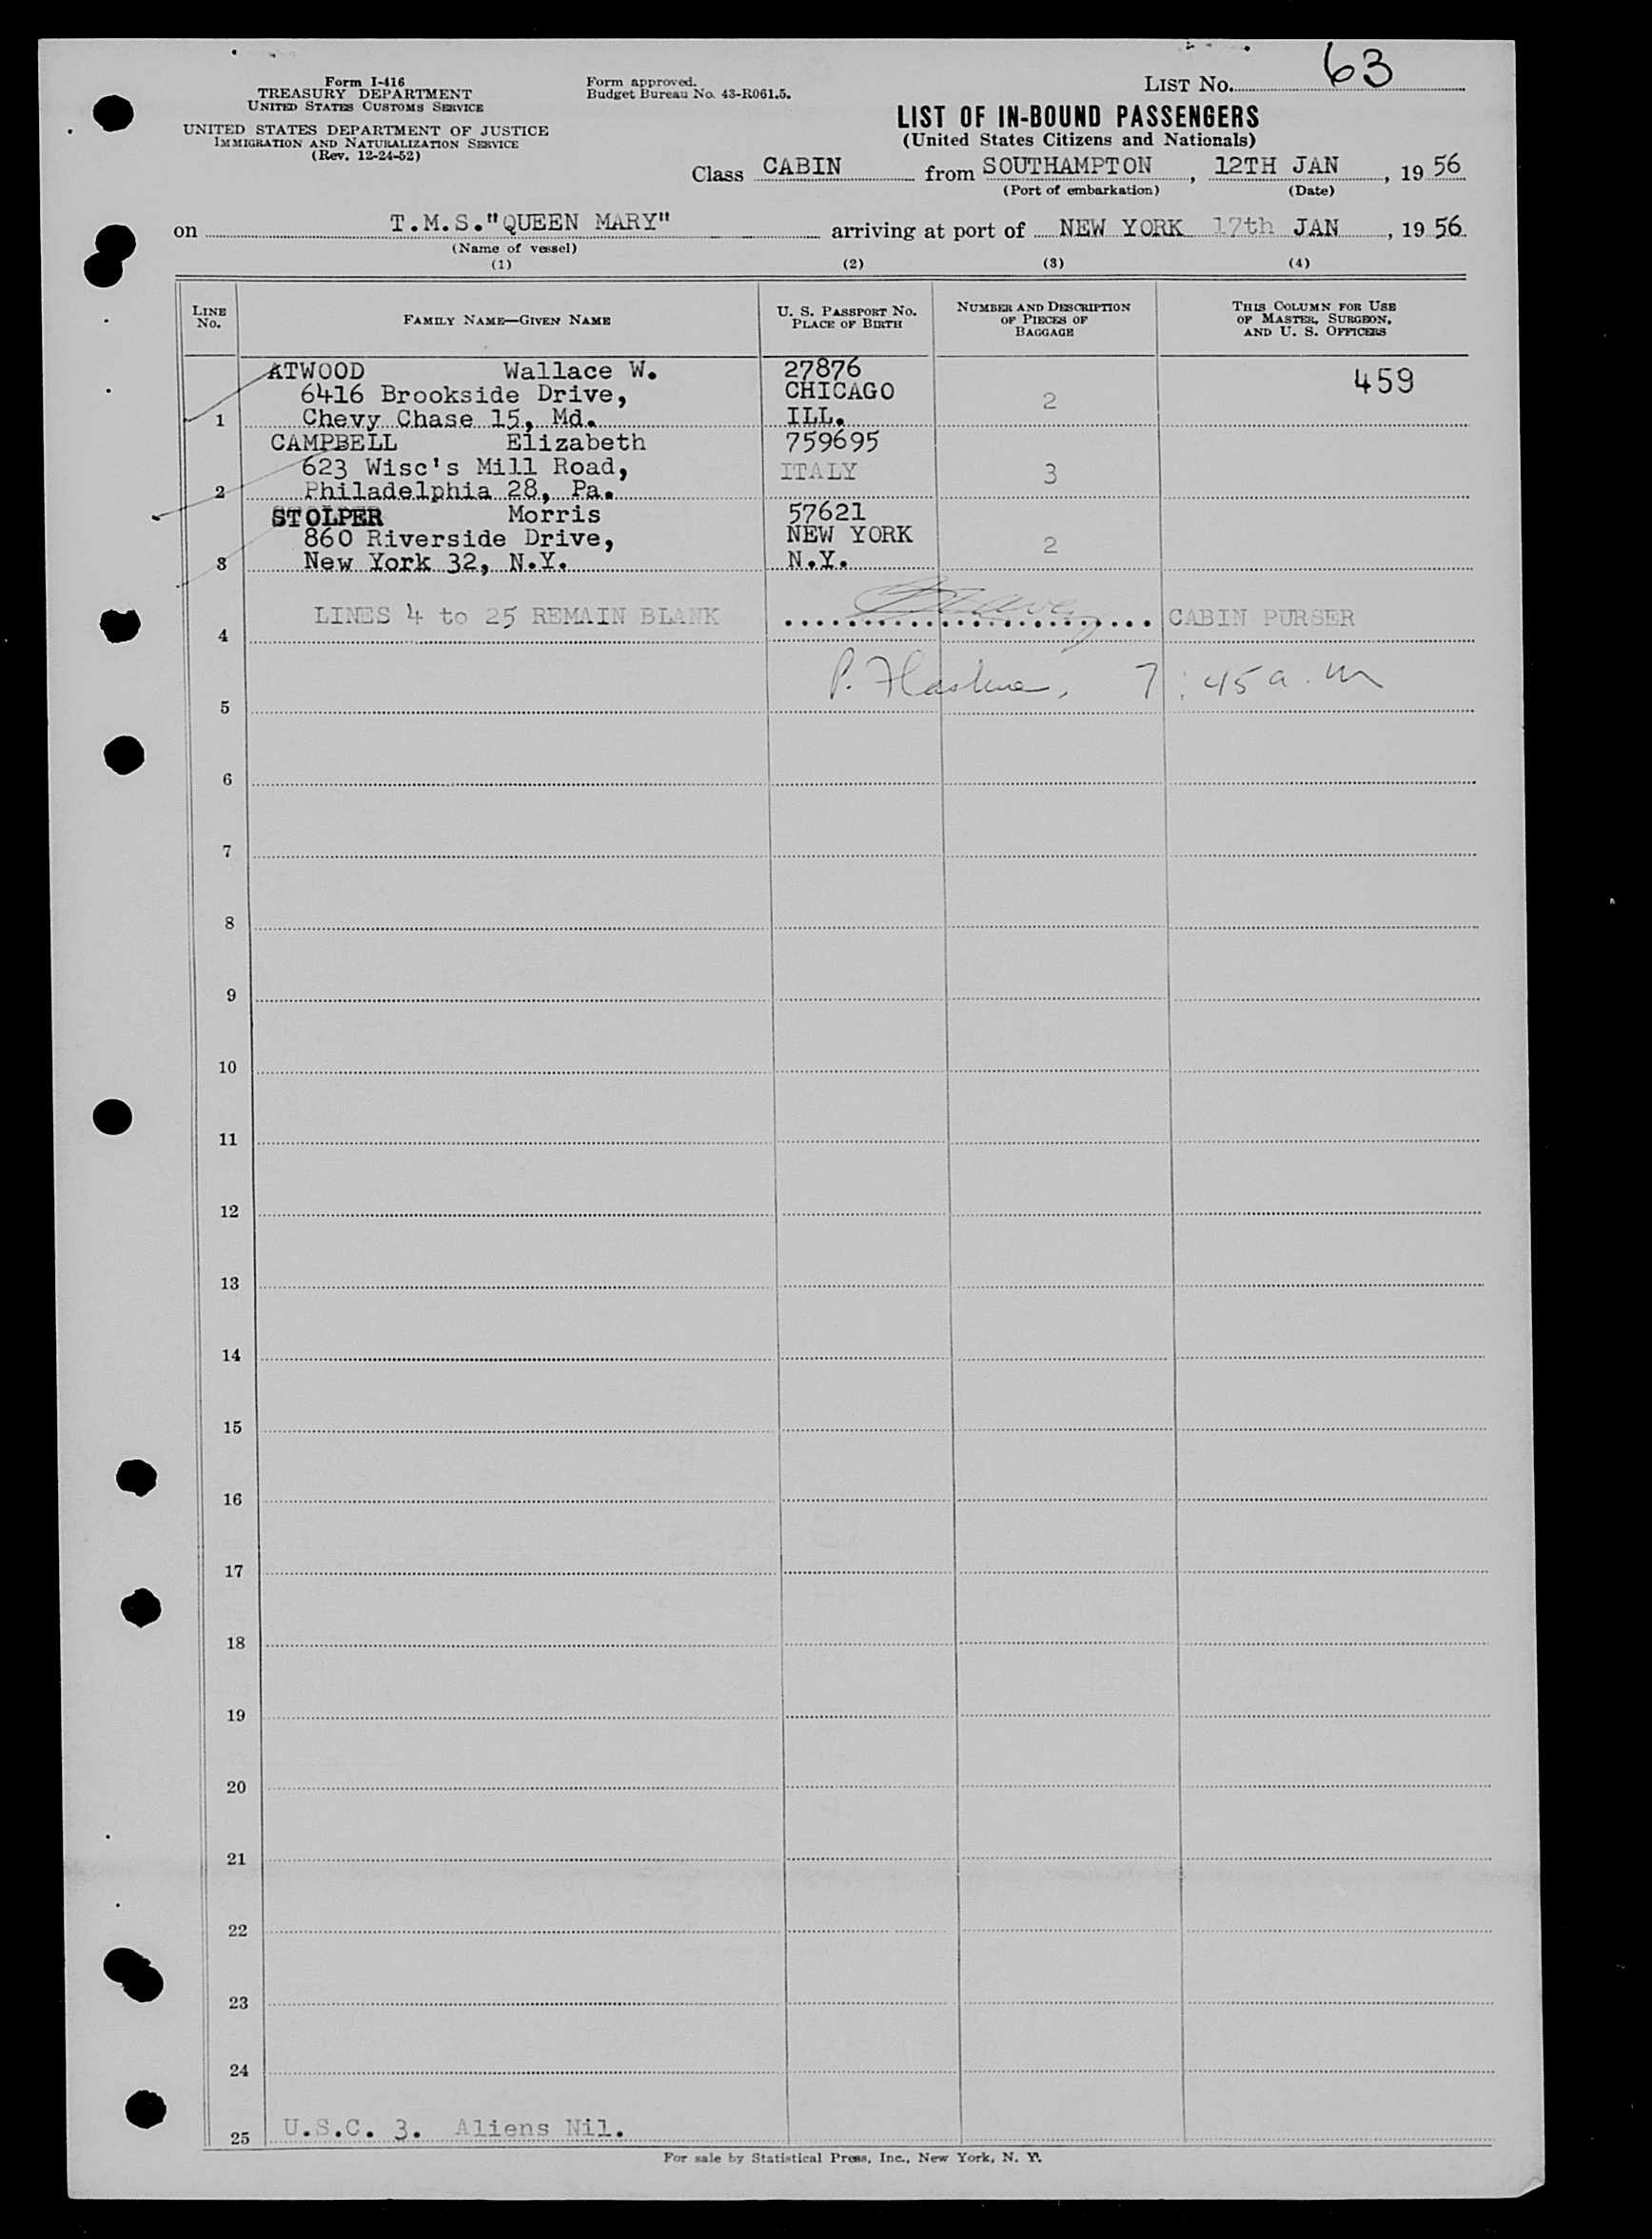 Form I-416
TREASURY DEPARTMENT
UNITED STATES CUSTOMS SERVICE
UNITED STATES DEPARTMENT OF JUSTICE
IMMIGRATION AND NATURALIZATION SERVICE
(Rev. 12-24-52)
Form approved.
Budget Bureau No. 43-R061.5.
LIST No. 63
LIST OF IN-BOUND PASSENGERS
(United States Citizens and Nationals)
Class CABIN from SOUTHAMPTON, 12TH JAN, 19 56
(Port of embarkation) (Date)
on T.M.S."QUEEN MARY" arriving at port of NEW YORK 17th JAN, 19 56
(Name of vessel)
(1) (2) (3) (4)
LINE No.
FAMILY NAME—GIVEN NAME
U. S. PASSPORT No.
PLACE OF BIRTH
NUMBER AND DESCRIPTION
OF PIECES OF
BAGGAGE
THIS COLUMN FOR USE
OF MASTER, SURGEON,
AND U. S. OFFICERS
ATWOOD Wallace W. 27876 459
6416 Brookside Drive, CHICAGO 2
1 Chevy Chase 15, Md. ILL.
CAMPBELL Elizabeth 759695
623 Wisc's Mill Road, ITALY 3
2 Philadelphia 28, Pa.
STOLPER Morris 57621
860 Riverside Drive, NEW YORK 2
3 New York 32, N.Y. N.Y.
LINES 4 to 25 REMAIN BLANK CABIN PURSER
4
P. 7:45 a.m
5
6
7
8
9
10
11
12
13
14
15
16
17
18
19
20
21
22
23
24
25 U.S.C. 3. Aliens Nil.
For sale by Statistical Press, Inc., New York, N. Y.